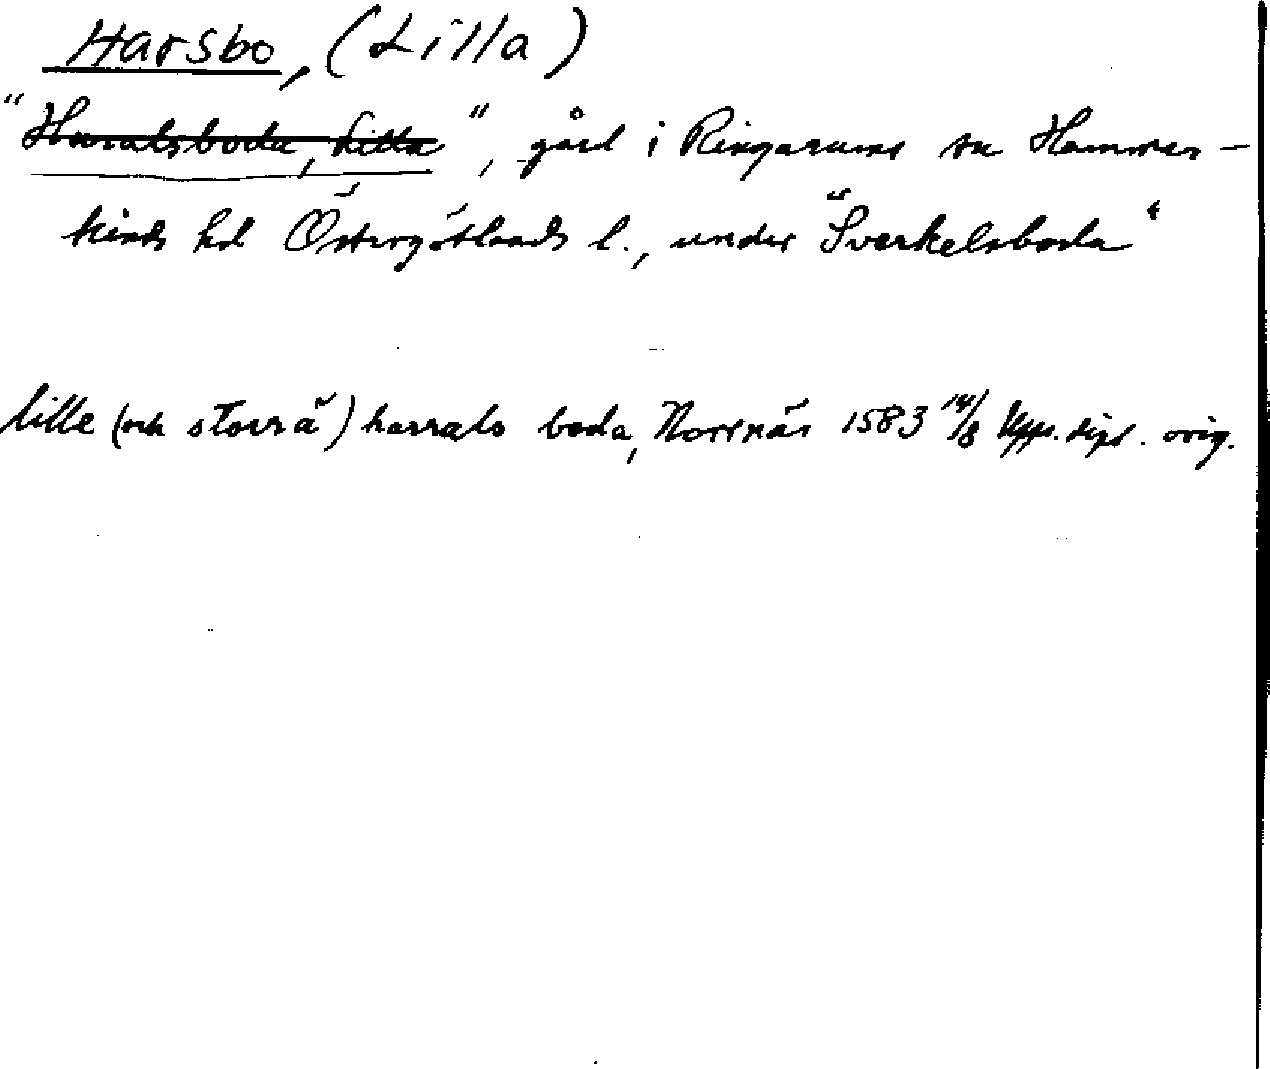 Harsbo, (Lilla)
"Haralsboda, Lilla", gård i Ringarums sn Hammer-
kinds hd Östergötlands l., under "Sverkelsboda"
lille (och storrä) harrals boda, Norrnäs 1583 14/8 Upps. dipl. orig.